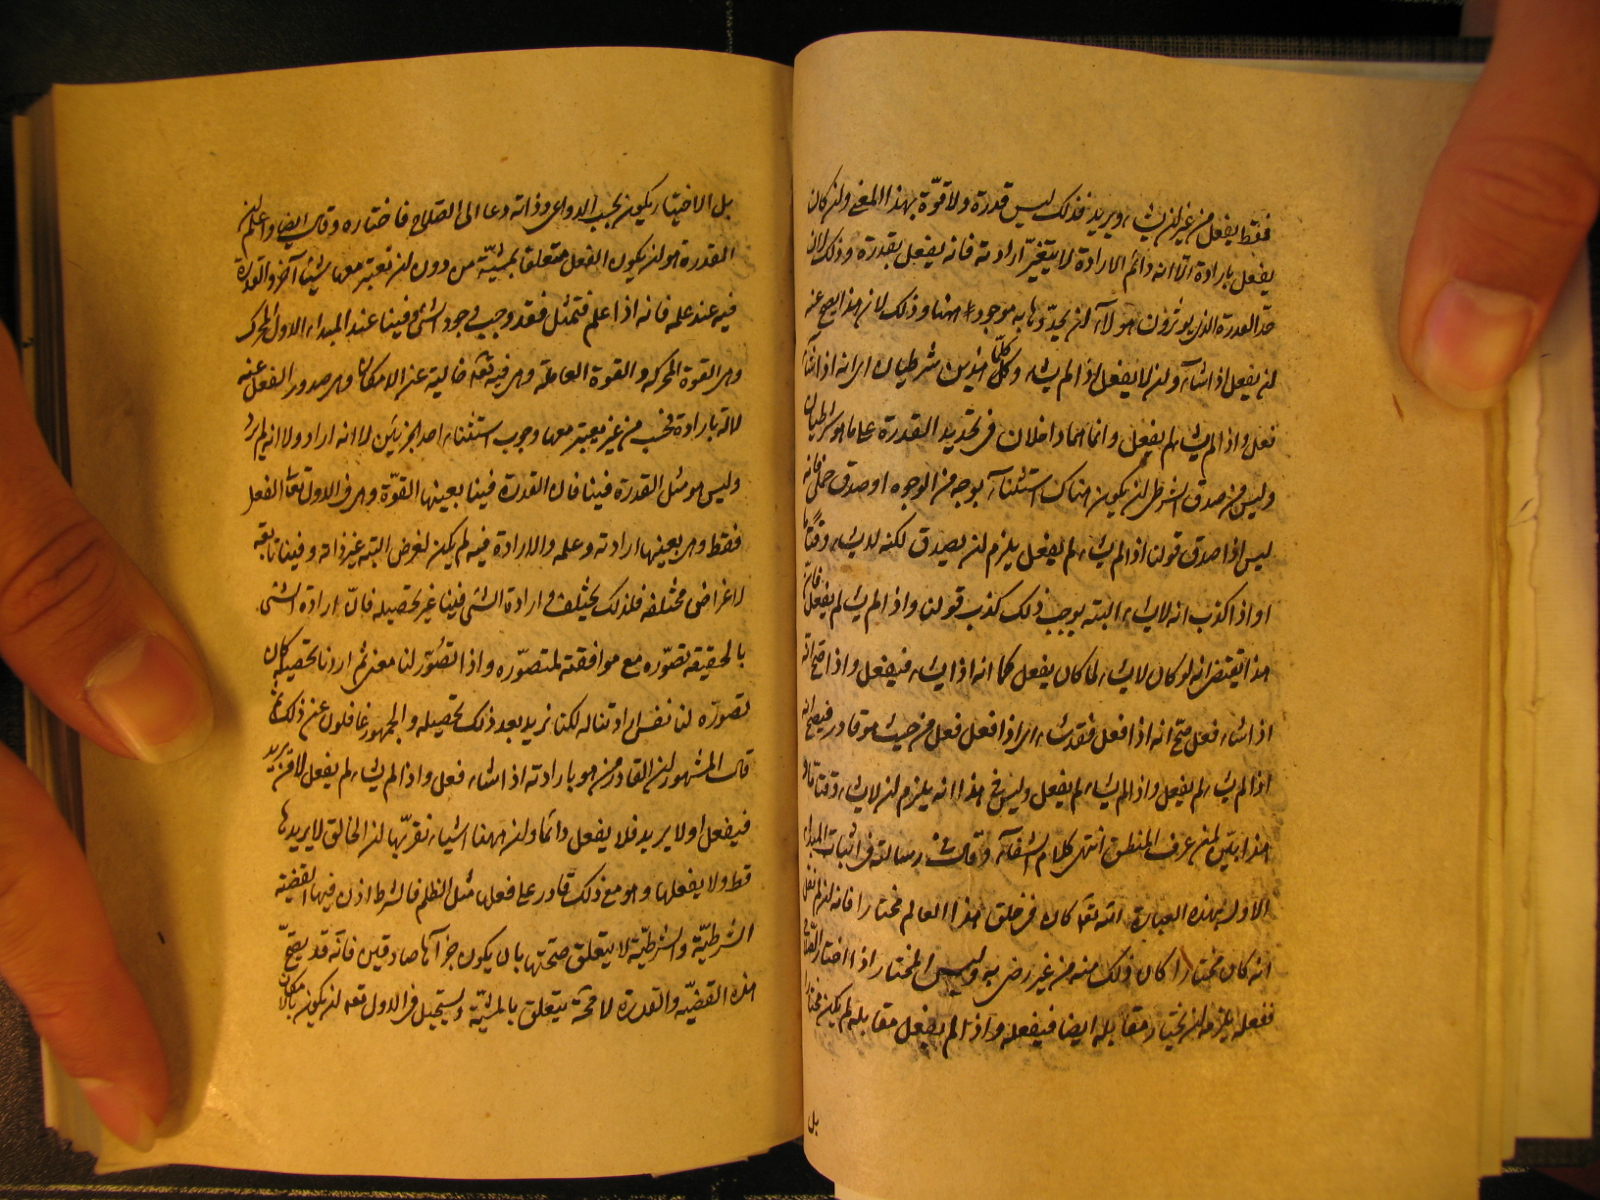 فقط يفعل من غير ان يشاء ويريد فذلك ليس قدرة ولا قوّة بهذا المعنى وان كان
يفعل بارادة الّا انه دائم الارادة لا يتغيّر ارادته فانه يفعل بقدرة وذلك لان
حدّ القدرة الذى يوثرون هولاء ان يحدّوها به موجود ههنا وذلك لان هذا يصح عنه
ان يفعل اذا شاء وان لا يفعل اذا لم يشاء وكلّا هذين شرطيان اى انه اذا شاء
فعل واذا لم يشاء لم يفعل وانما هما داخلان فى تحديد القدرة على ما هو شرطيان
وليس من صدق الشرطى ان يكون هناك استثناء بوجه من الوجوه او صدق حملى فانه
ليس اذا صدق قولنا اذا لم يشاء لم يفعل يلزم ان يصدق لكنه لم يشاء وقتًا ما
او اذا كذب انه لا يشاء البته يوجب ذلك كذب قولنا واذا لم يشاء لم يفعل فانّ
هذا يقتضى انه لو كان لا يشاء لما كان يفعل كما انه اذا يشاء فيفعل واذا صح انه
اذا شاء فعل صح انه اذا فعل فقد شاء اى اذا فعل فعل من حيث هو قادر فيصح انه
اذا لم يشاء لم يفعل واذا لم يشاء لم يفعل وليس فى هذا انه يلزم ان لا يشاء وقتا ما و
هذا بيّن لمن عرف المنطق انتهى كلام الشفاء وقال فى رسالته فى اثبات المبداء
الاول بهذه العبارة انه تعا كان فى خلق هذا العالم مختارا فانه ان لم نقل
انه كان مختارا كان ذلك منه من غير رضى به وليس المختار اذا اختار الصلاح
ففعله يلزمه ان يختار مقابله ايضا فيفعله واذا لم يفعل مقابله لم يكن مختارا
بل
بل الاختيار يكون بحسب الدواعى وذاته دعا الى الصلاح فاختاره وقال ايضا واعلم ان
القدرة هو ان يكون الفعل متعلقا بمشيّة من دون ان تعتبر معها شيئا آخر والقدرة
فيه عند علمه فانه اذا علم فتمثل فقد وجب وجود الشئ وفينا عند المبداء الاول المحرك
وهى القوة المحركه والقوة العاملة وهى فيه تعا خالية عن الامكان وهى صدور الفعل عنه
لاته بارادة فحسب من غير يعتبر معها وجوب استثناء احد الجزئين لا انه اراد ولا انه لم يرد
وليس هو مثل القدرة فينا فان القدرة فينا بعينها القوّة وهى فى الاول تعا الفعل
فقط وهى بعينها ارادته وعلمه والارادة فيه لم يكن لغرض البته غير ذاته وفينا تابعه
لاغراض مختلفه فلذلك يختلف وارادة الشئ فينا غير تحصيله فانّ ارادة الشئ
بالحقيقه تصوّره مع موافقته لمتصوّره واذا تصوّر لنا معنى ثم اردنا تحصيله كان
تصوّره لنا نفس ارادتنا له لكنا نريد بعد ذلك تحصيله والجمهور غافلون عن ذلك ثم
قال المشهور ان القادر من هو بارادته اذا شاء فعل واذا لم يشاء لم يفعل لا من يريد
فيفعل او لا يريد فلا يفعل دائما وان ههنا اشياء نقرّ بها ان الخالق لا يريدها
قط ولا يفعلها وهو مع ذلك قادر على فعلها مثل الظلم فالشرط اذن فيها القضيّه
الشرطيّة والشرطيّة لا يتعلق صحتها بان يكون جزاها صادقين فانّه قد يصحّ
هذه القضيّه والقدرة لا محّة يتعلق بالمشيّة ويستحيل فى الاول تعه ان يكون بامكان